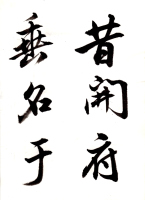 昔開府
垂名于